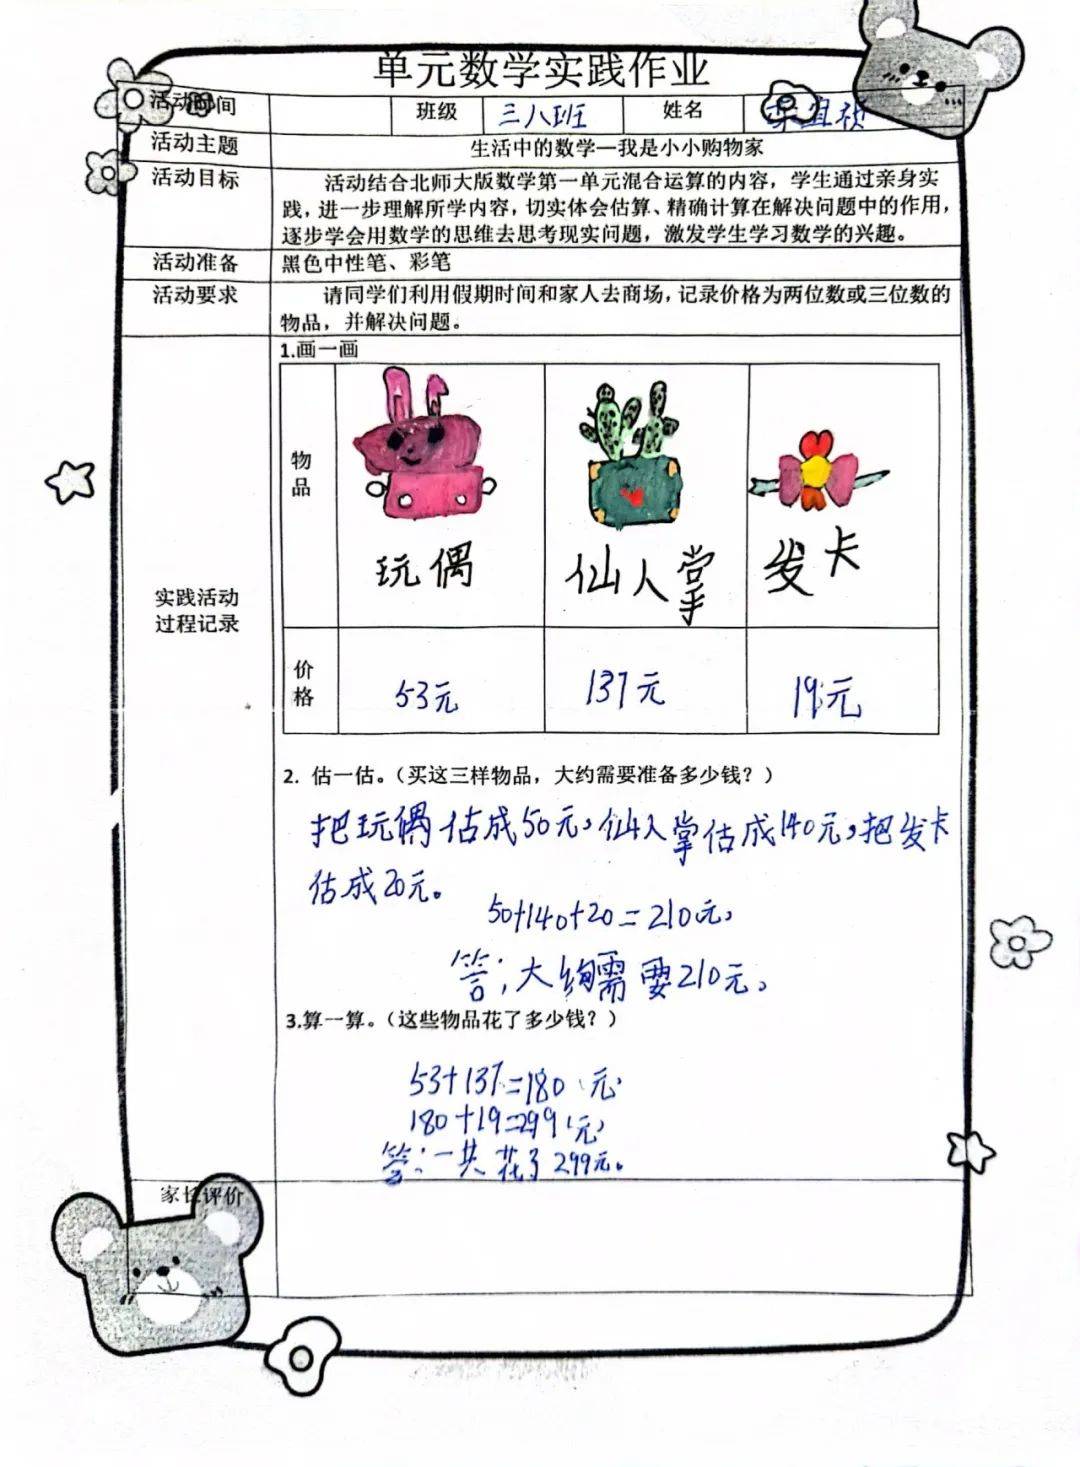 单元数学实践作业
活动时间 班级 三八班 姓名
活动主题 生活中的数学—我是小小购物家
活动目标 活动结合北师大版数学第一单元混合运算的内容，学生通过亲身实
践，进一步理解所学内容，切实体会估算、精确计算在解决问题中的作用，
逐步学会用数学的思维去思考现实问题，激发学生学习数学的兴趣。
活动准备 黑色中性笔、彩笔
活动要求 请同学们利用假期时间和家人去商场，记录价格为两位数或三位数的
物品，并解决问题。
实践活动
过程记录
1.画一画
物品
玩偶 仙人掌 发卡
价格
53元 137元 19元
2. 估一估。（买这三样物品，大约需要准备多少钱？）
把玩偶估成50元，仙人掌估成140元，把发卡
估成20元。
50+140+20=210元，
答：大约需要210元。
3.算一算。（这些物品花了多少钱？）
53+137=180（元）
180+19=299（元）
答：一共花了299元。
家长评价